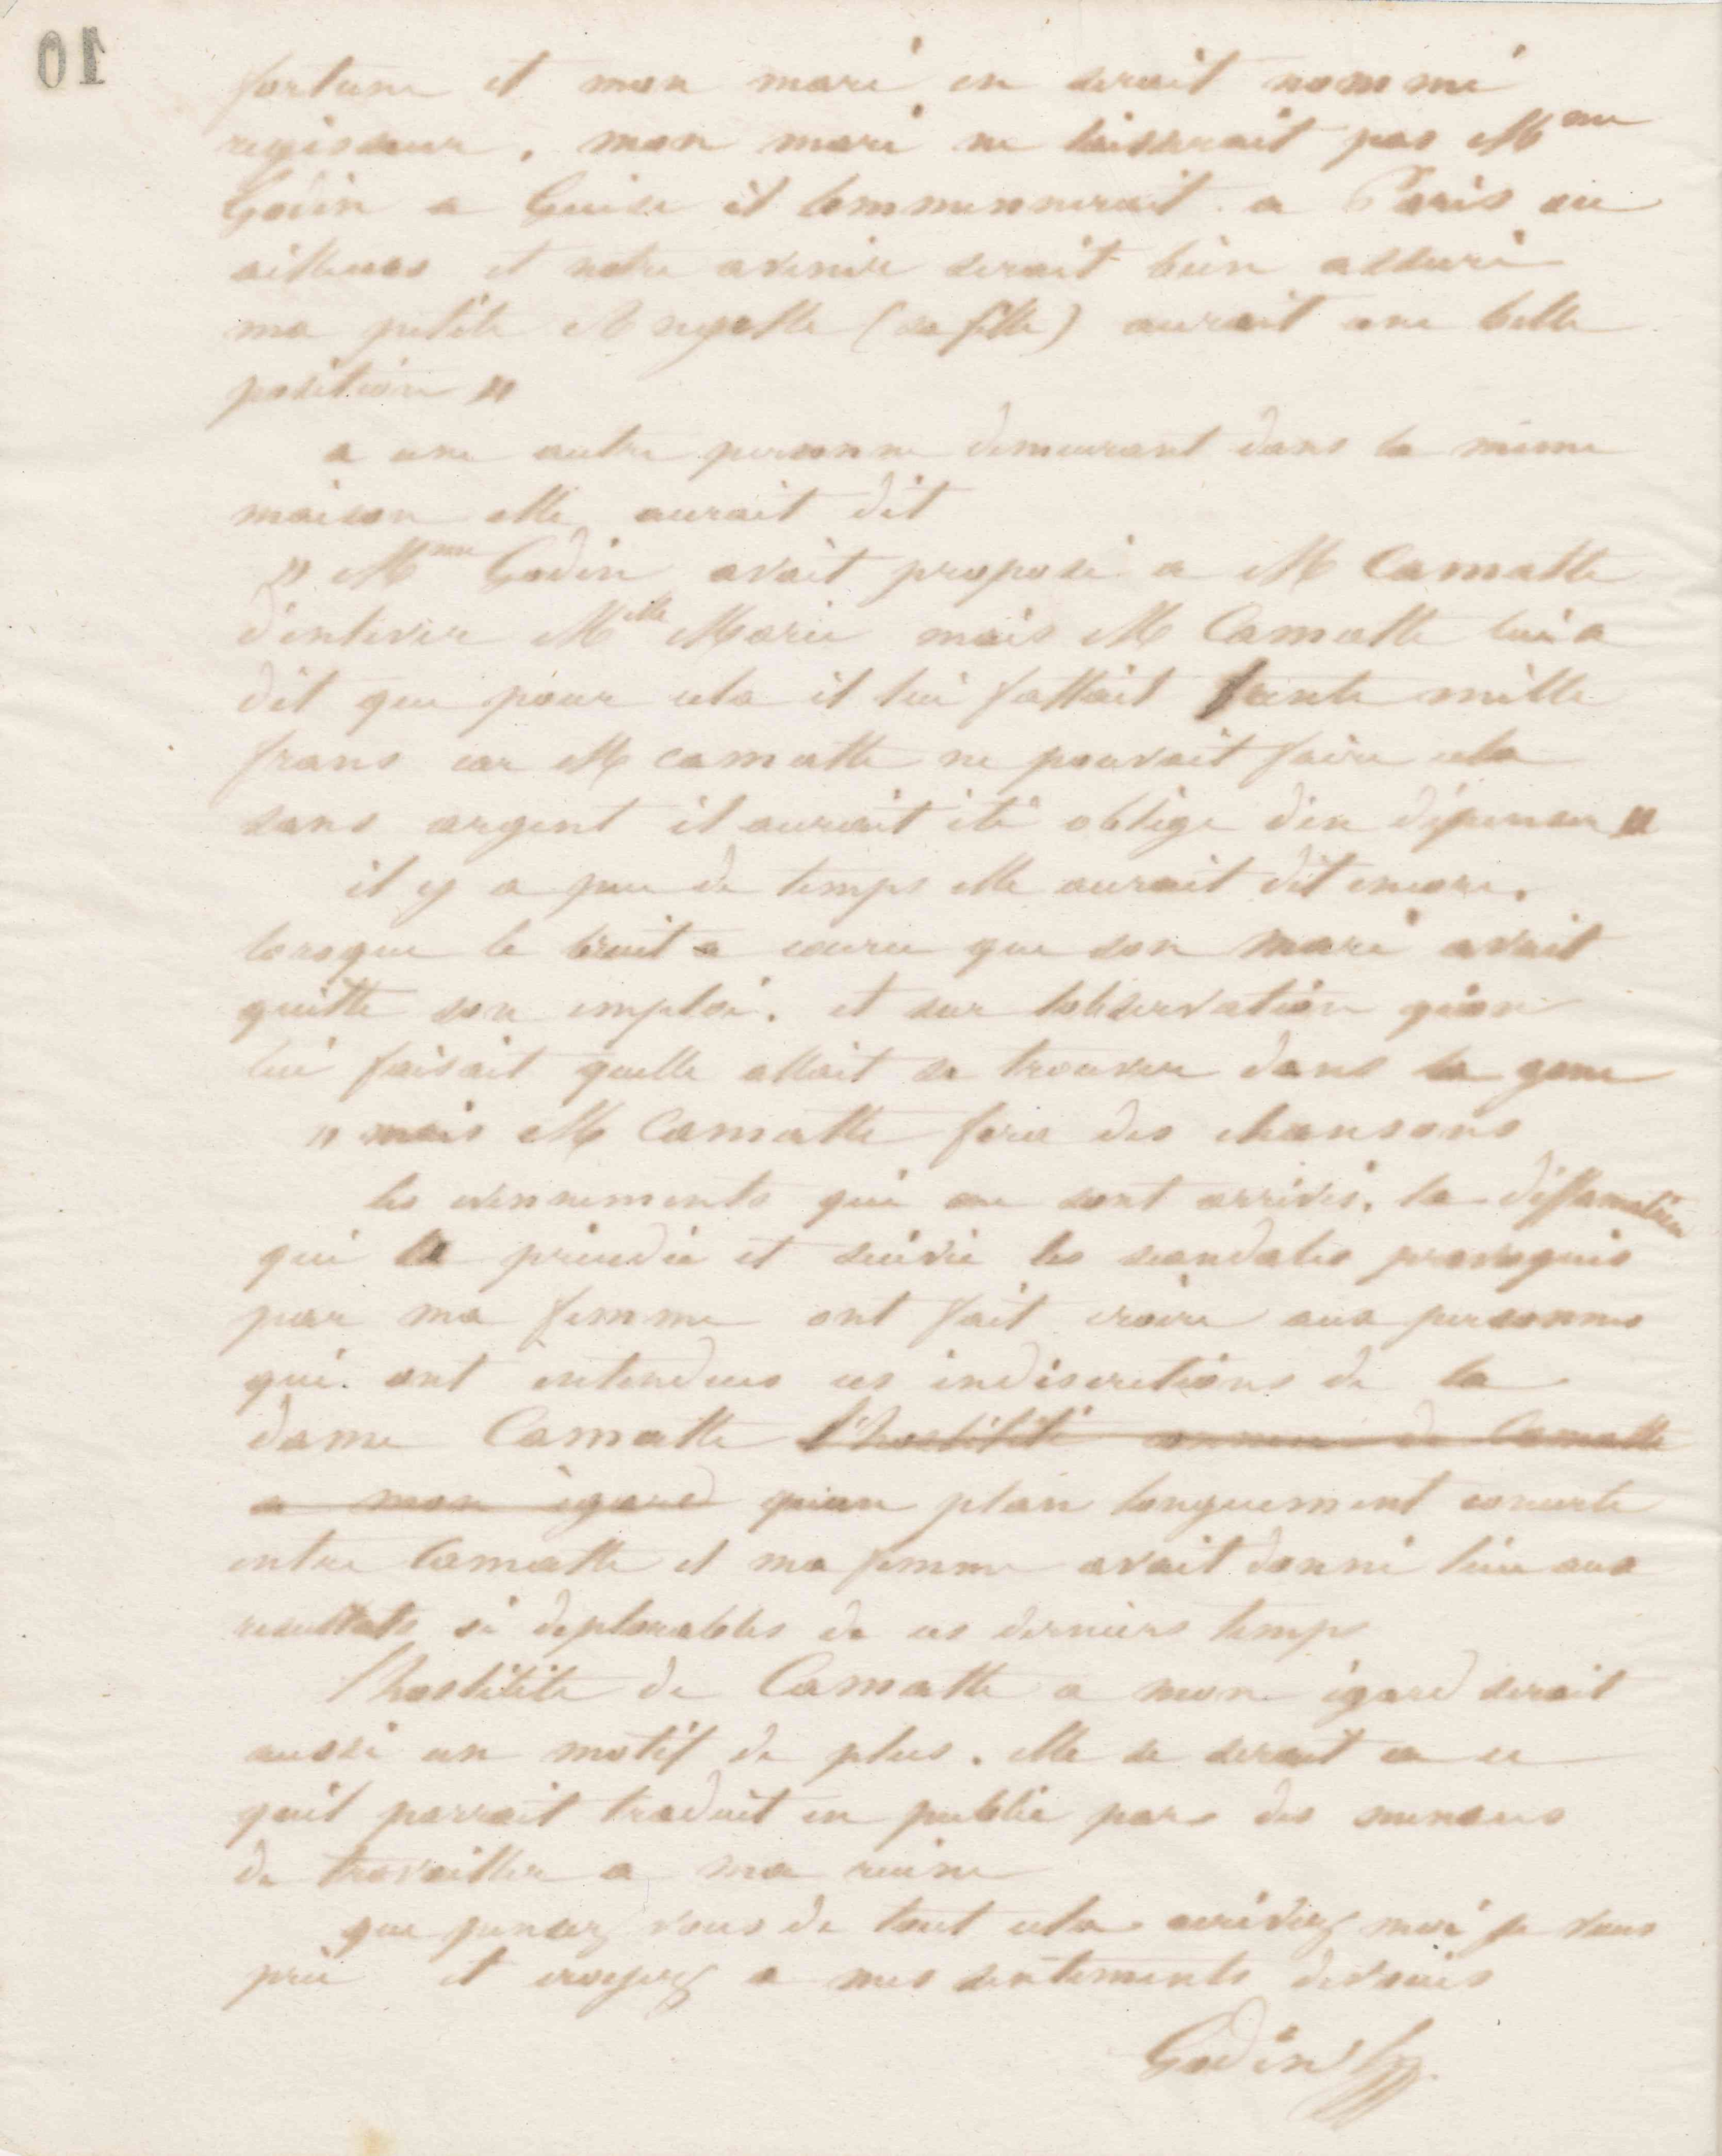 10
fortune et mon mari en serait nommé
regisseur, mon mari ne laisserait pas Mme
Godin a Guise il lemmennerait a Paris ou
ailleurs et notre avenir serait bien assuré
ma petite Angelle (sa fille) aurait une belle
position »
a une autre personne demeurant dans la même
maison elle aurait dit
» Mme Godin avait proposé a M Camatte
d'enlever Melle Marie mais M Camatte lui a
dit que pour cela il lui fallait trente mille
frans car M camatte ne pouvait faire cela
sans argent il aurait été oblige d'en dépenser »
il y a peu de temps elle aurait dit encore,
lorsque le bruit a couru que son mari avait
quitte son emploi. et sur lobservation qu'on
lui faisait quelle allait se trouver dans la gene
» mais M Camatte fera des chansons
les evennements qui me sont arrivés, la diffamation
qui a précédé et suivie les scandales provoqués
par ma femme ont fait croire aux personnes
qui ont entendues ces indiscretions de la
dame Camatte l'hostilité de Camatte
a mon égard qu'un plan longuement concerte
entre Camatte et ma femme avait donné lieu aux
resultats si deplorables de ces derniers temps
l'hostilite de Camatte a mon égard serait
aussi un motif de plus. elle se serait a ce
quil parrait traduit en public par des menaces
de travailler a ma ruine
que pensez vous de tout cela ecrivez moi je vous
prie et croyez a mes sentements dévoués
Godin